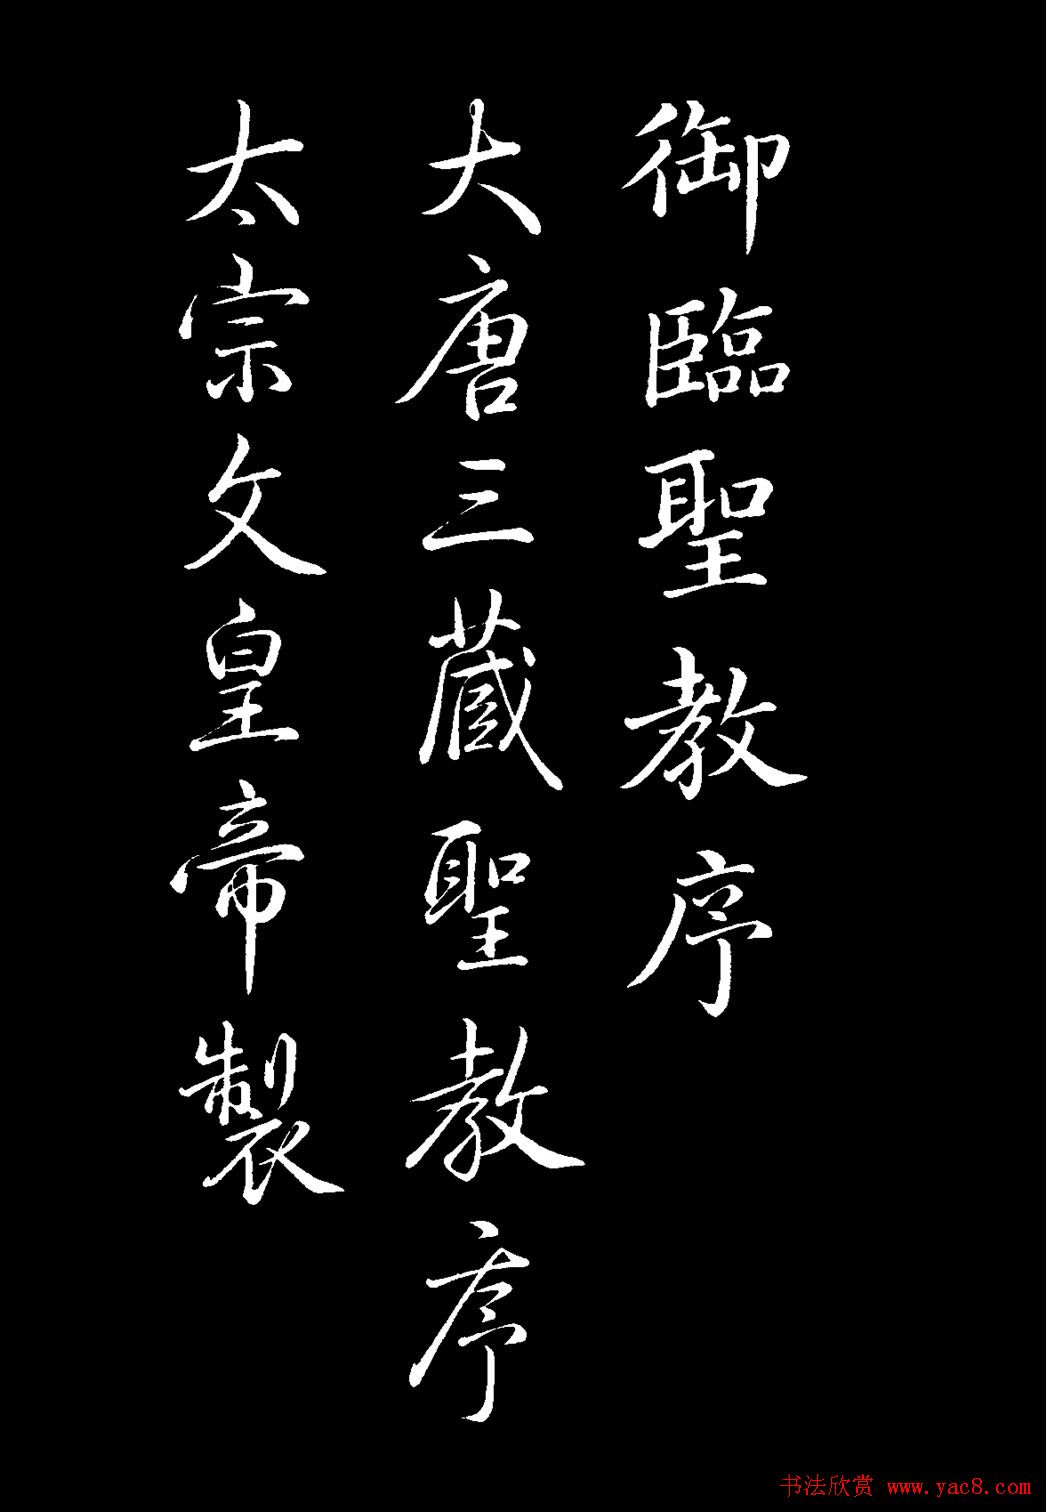 御臨聖教序
大唐三藏聖教序
太宗文皇帝製
书法欣赏 www.yac8.com